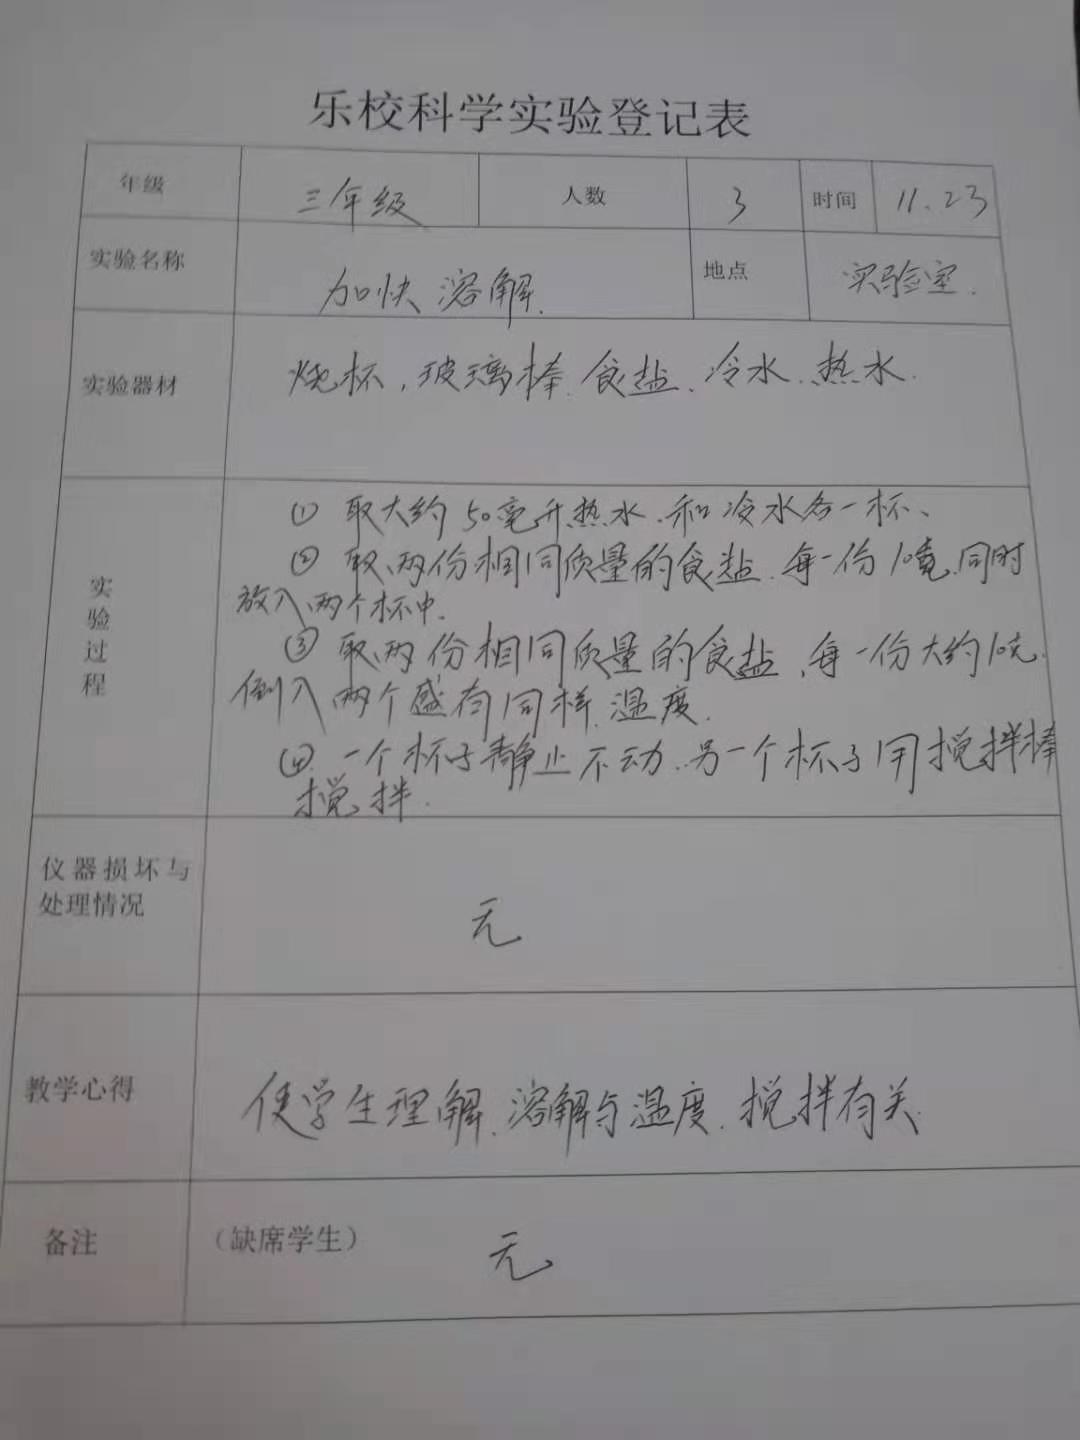 乐校科学实验登记表
年级 三年级 人数 3 时间 11.23
实验名称 加快溶解. 地点 实验室.
实验器材 烧杯、玻璃棒、食盐、冷水、热水.
实验过程
① 取大约50毫升热水、和冷水各一杯、
② 取两份相同质量的食盐、每一份10克、同时
放入两个杯中.
③ 取两份相同质量的食盐、每一份大约10克、
倒入两个盛有同样温度.
④ 一个杯子静止不动、另一个杯子用搅拌棒
搅拌.
仪器损坏与
处理情况 无
教学心得 使学生理解、溶解与温度、搅拌有关.
备注 （缺席学生） 无